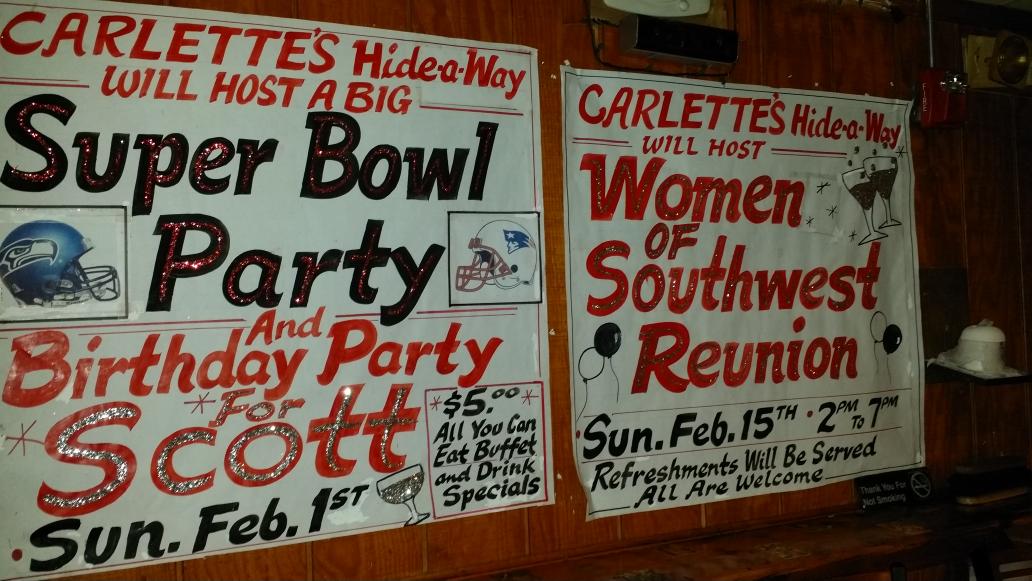 CARLETTE'S Hide-a-Way
WILL HOST A BIG
Super Bowl
Party
And
Birthday Party
* For
Scott
Sun. Feb. 1ST
* $5.00 *
All You Can
Eat Buffet
and Drink
Specials
CARLETTE'S Hide-a-Way
WILL HOST
Women
OF
Southwest
Reunion
Sun. Feb. 15TH · 2PM To 7PM
Refreshments Will Be Served
All Are Welcome
Thank You For
Not Smoking